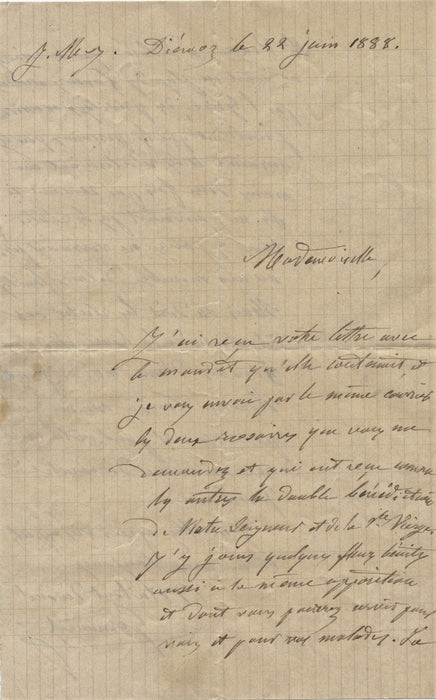 J. M. J. Diémoz le 22 juin 1888.
Mademoiselle,
J'ai reçu votre lettre avec
le mandat qu'elle contenait et
je vous envoie par le même courrier
les deux rosaires que vous me
demandez et qui ont reçu comme
les autres la double bénédiction
de Notre Seigneur et de la Ste Vierge
J'y joins quelques fleurs bénites
aussi à la même apparition
et dont vous pourrez user pour
vous et pour vos malades. La